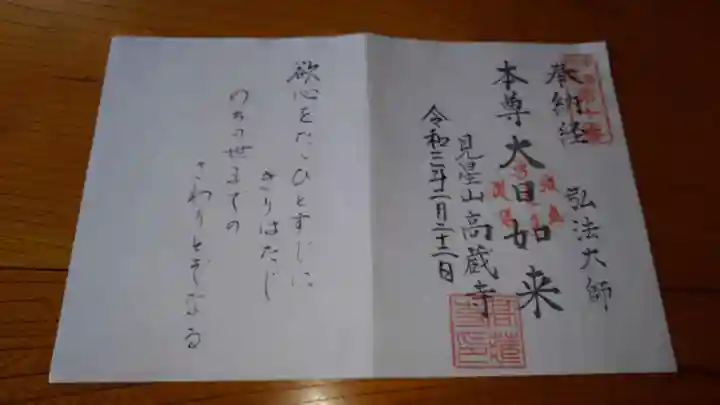 奉納経 弘法大師
本尊大日如来
見星山高蔵寺
令和三年二月二十二日
欲心をたゞひとすじに
きりはたじ
のちの世までの
さわりとぞなる
高蔵寺印